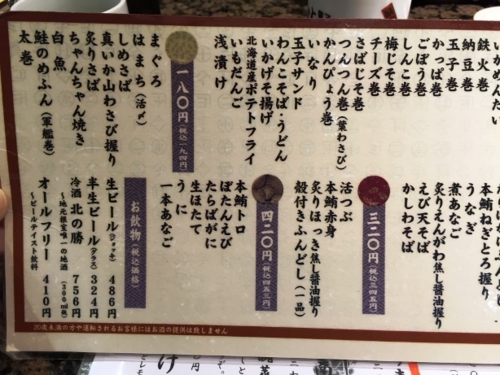 いかめんたい
鉄火巻
納豆巻
玉子巻
かっぱ巻
ごぼう巻
しんこ巻
梅じそ巻
チーズ巻
さばじそ巻
つんつん巻(葉わさび)
かんぴょう巻
いなり
玉子サンド
わんこそば・うどん
いかげそ揚げ
北海道産ポテトフライ
いもだんご
浅漬け
本鮪ねぎとろ握り
うなぎ
煮あなご
炙りえんがわ焦し醤油握り
えび天そば
かしわそば
三二〇円(税込三四五円)
活つぶ
本鮪赤身
炙りほっき焦し醤油握り
殻付きふんどし(一品)
四二〇円(税込四五三円)
本鮪トロ
ぼたんえび
たらばがに
生ほたて
うに
一本あなご
一八〇円(税込一九四円)
まぐろ
はまち(活〆)
しめさば
真いか山わさび握り
炙りさば
ちゃんちゃん焼き
白魚
鮭のめふん(軍艦巻)
太巻
お飲物(税込価格)
生ビール(ジョッキ) 486円
半生ビール(グラス) 324円
冷酒 北の勝 756円
~地元根室唯一の地酒(300ml瓶)
オールフリー 410円
~ビールテイスト飲料
20歳未満の方や運転されるお客様にはお酒の提供は致しません